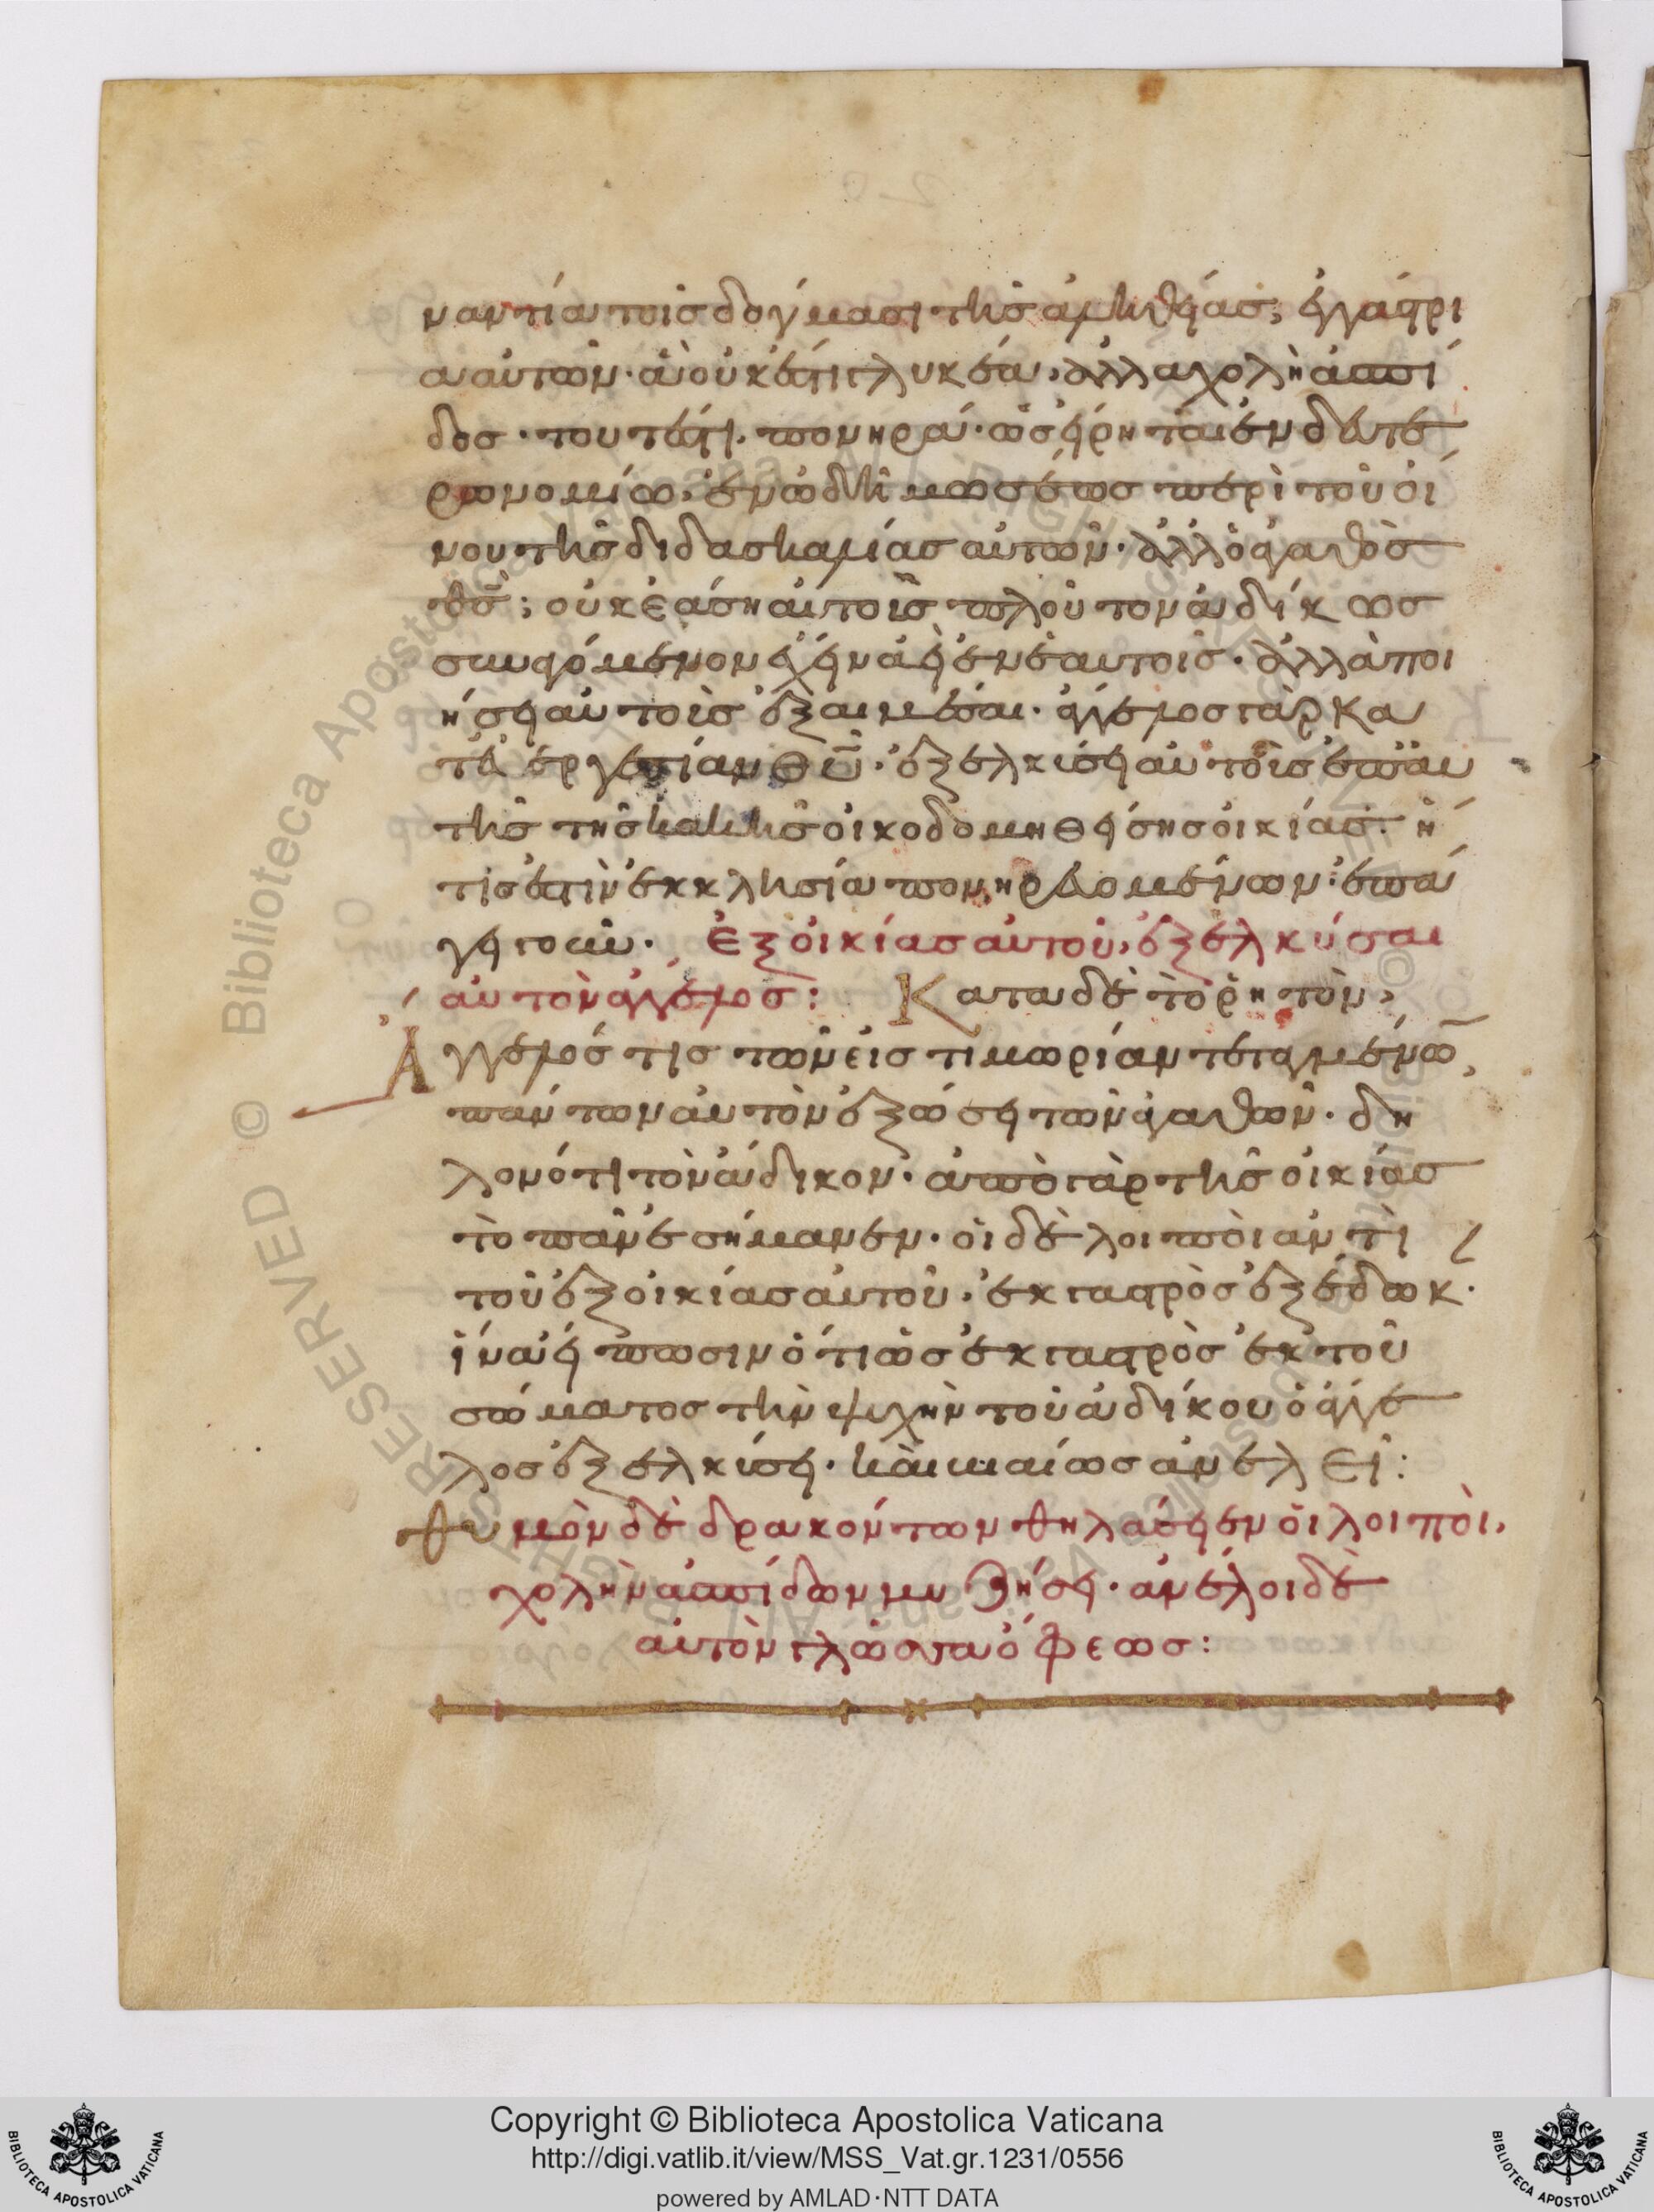 ναντία τοῖς δόγμασι τῆς ἀληθείας, ἔγγαστρι
α αὐτῶν· ἃ οὐκ ἔστι γλυκέα, ἀλλὰ χολὴ ἀσπί
δος· τουτέστι πονηρά· ὡς εἴρηται ἐν δευτε
ρονομίῳ, ἐν ᾠδῇ μωσέως περὶ τοῦ οἴ
νου τῆς διδασκαλίας αὐτῶν· ἀλλ' ὁ ἀγαθὸς
θς̄; οὐκ ἐάσῃ αὐτοῖς πλοῦτον ἀδίκως
συναγόμενον ἔχειν ἀεὶ ἐν ἑαυτοῖς· ἀλλὰ ποι
ήσει αὐτοῖς ἐξαιμέσαι· ἄγγελος γὰρ κα
τ' ἐνεργεστίαν θῡ· ἐξελκύσει αὐτοῖς ἐπὰν
τῆς τῆς κακῆς οἰκοδομηθείσης οἰκίας· ἥ
τίς ἐστὶν ἐκκλησία πονηρευομένων· ἐπά
γει γοῦν· Ἐξ οἰκίας αὐτοῦ, ἐξελκύσαι
αὐτὸν ἄγγελος: Κατα δὲ τὸ ῥητὸν,
Ἄγγελός τις τῶν εἰς τιμωρίαν τεταγμένω̄,
πάντων αὐτὸν ἐξώσει τῶν ἀγαθῶν· δη
λονότι τὸν ἄδικον· ἀπὸ γὰρ τῆς οἰκίας
τὸ πᾶν ἐσήμανεν· οἱ δὲ λοιποὶ ἀντὶ
τοῦ ἐξ οἰκίας αὐτοῦ· ἐκ γαστρὸς ἐξέδωκ·
ἵνα εἴπωσιν ὅτι ὡς ἐκ γαστρὸς ἐκ τοῦ
σώματος τὴν ψυχὴν τοῦ ἀδίκου ὁ ἄγγε
λος ἐξελκύσει· καὶ βιαίως ἀνελεῖ:
θυμὸν δὲ δρακόντων θηλάσειεν οἱ λοιποὶ,
χολὴν ἀσπίδων μυζήσει· ἀνέλοι δὲ
αὐτὸν γλῶσσα ὄφεως:
Copyright © Biblioteca Apostolica Vaticana
http://digi.vatlib.it/view/MSS_Vat.gr.1231/0556
powered by AMLAD·NTT DATA
BIBLIOTECA APOSTOLICA VATICANA
BIBLIOTECA APOSTOLICA VATICANA